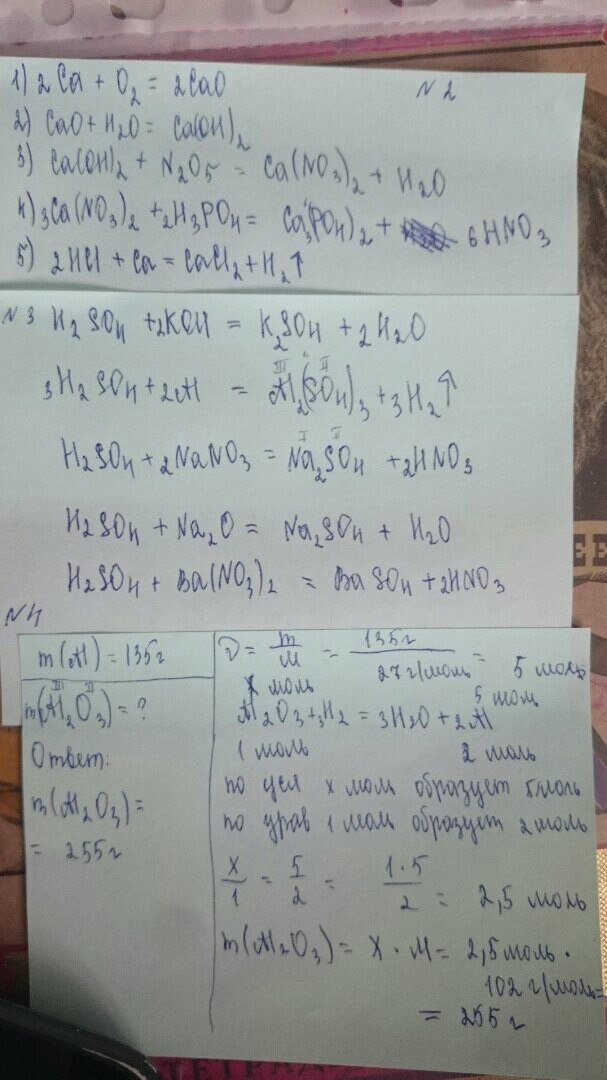 1) 2Ca + O2 = 2CaO
N 2
2) CaO + H2O = Ca(OH)2
3) Ca(OH)2 + N2O5 = Ca(NO3)2 + H2O
4) 3Ca(NO3)2 + 2H3PO4 = Ca3(PO4)2 + 6HNO3
5) 2HCl + Ca = CaCl2 + H2↑
N 3 H2SO4 + 2KOH = K2SO4 + 2H2O
III II
3H2SO4 + 2Al = Al2(SO4)3 + 3H2↑
I II
H2SO4 + 2NaNO3 = Na2SO4 + 2HNO3
H2SO4 + Na2O = Na2SO4 + H2O
H2SO4 + Ba(NO3)2 = BaSO4 + 2HNO3
N4
m(Al) = 135г
III II
m(Al2O3) = ?
Ответ:
m(Al2O3) =
= 255г
ν = m/M = 135г/27г/моль = 5 моль
x моль 5 моль
Al2O3 + 3H2 = 3H2O + 2Al
1 моль 2 моль
по усл x моль образует 5 моль
по урав 1 моль образует 2 моль
x/1 = 5/2 = 1·5/2 = 2,5 моль
m(Al2O3) = x · M = 2,5 моль ·
102 г/моль =
= 255г
ТЕТРАД